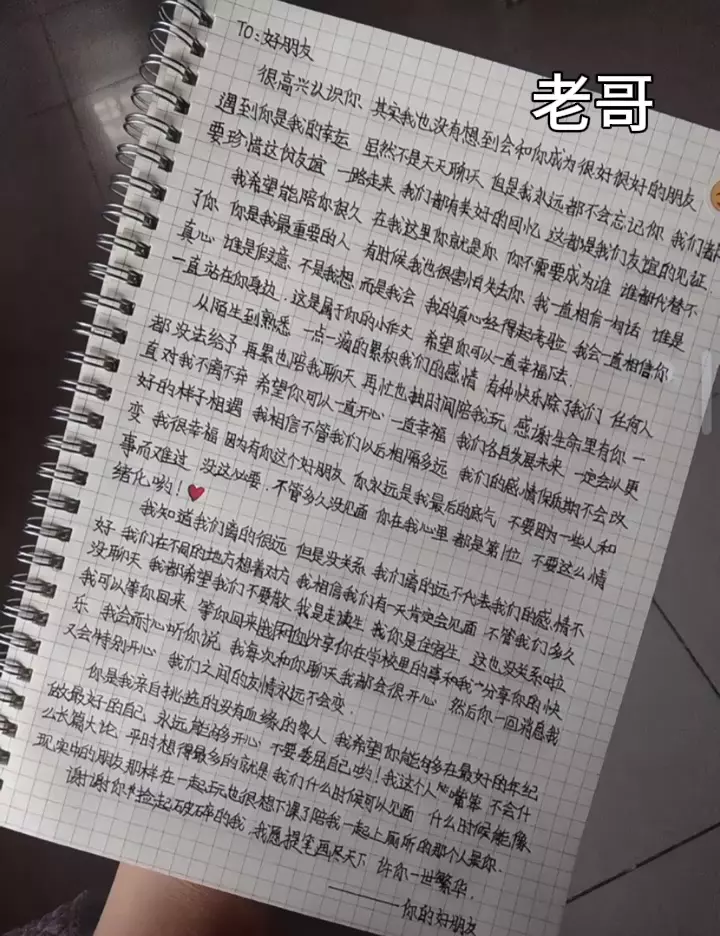 老哥
TO:好朋友
很高兴认识你 其实我也没有想到会和你成为很好很好的朋友
遇到你是我的幸运 虽然不是天天聊天 但是我永远都不会忘记你 我们都
要珍惜这份友谊 一路走来 我们都有美好的回忆 这都是我们友谊的见证.
我希望能陪你很久 在我这里你就是你 你不需要成为谁 谁都代替不
了你 你是我最重要的人 有时候我也很害怕失去你 我一直相信一句话 谁是
真心 谁是假意 不是我想 而是我会 我的真心经得起考验 我会一直相信你
一直站在你身边. 这是属于你的小作文 希望你可以一直幸福下去.
从陌生到熟悉 一点一滴的累积我们的感情 有种快乐除了我们 任何人
都没法给予 再累也陪我聊天 再忙也抽时间陪我玩 感谢生命里有你 一
直对我不离不弃 希望你可以一直开心 一直幸福 我们各自发展未来 一定会以更
好的样子相遇 我相信不管我们以后相隔多远 我们的感情保质期不会改
变 我很幸福 因为有你这个好朋友 你永远是我最后的底气 不要因为一些人和
事而难过 没这必要. 不管多久没见面 你在我心里 都是第1位 不要这么情
绪化哟!❤
我知道我们离的很远 但是没关系 我们离的远不代表我们的感情不
好 我们在不同的地方想着对方 我相信我们有一天肯定会见面 不管我们多久
没聊天 我都希望我们不要散 我是走读生 我你是住宿生 这也没关系啦
我可以等你回来 等你回来分享你在学校里的事和我 分享你的快
乐 我会耐心听你说 我每次和你聊天我都会很开心 然后你一回消息我
又会特别开心 我们之间的友情永远不会变.
你是我亲自挑选的没有血缘的家人 我希望你能够在最好的年纪
做最好的自己 永远能够开心 不要委屈自己哟!我这个人嘴笨 不会什
么长篇大论 平时想得最多的就是我们什么时候可以见面 什么时候能像
现实中的朋友那样在一起玩也很想下课了陪我一起上厕所的那个人是你.
谢谢你捡起破碎的我 我愿提笔画尽天下 许你一世繁华.
———你的好朋友